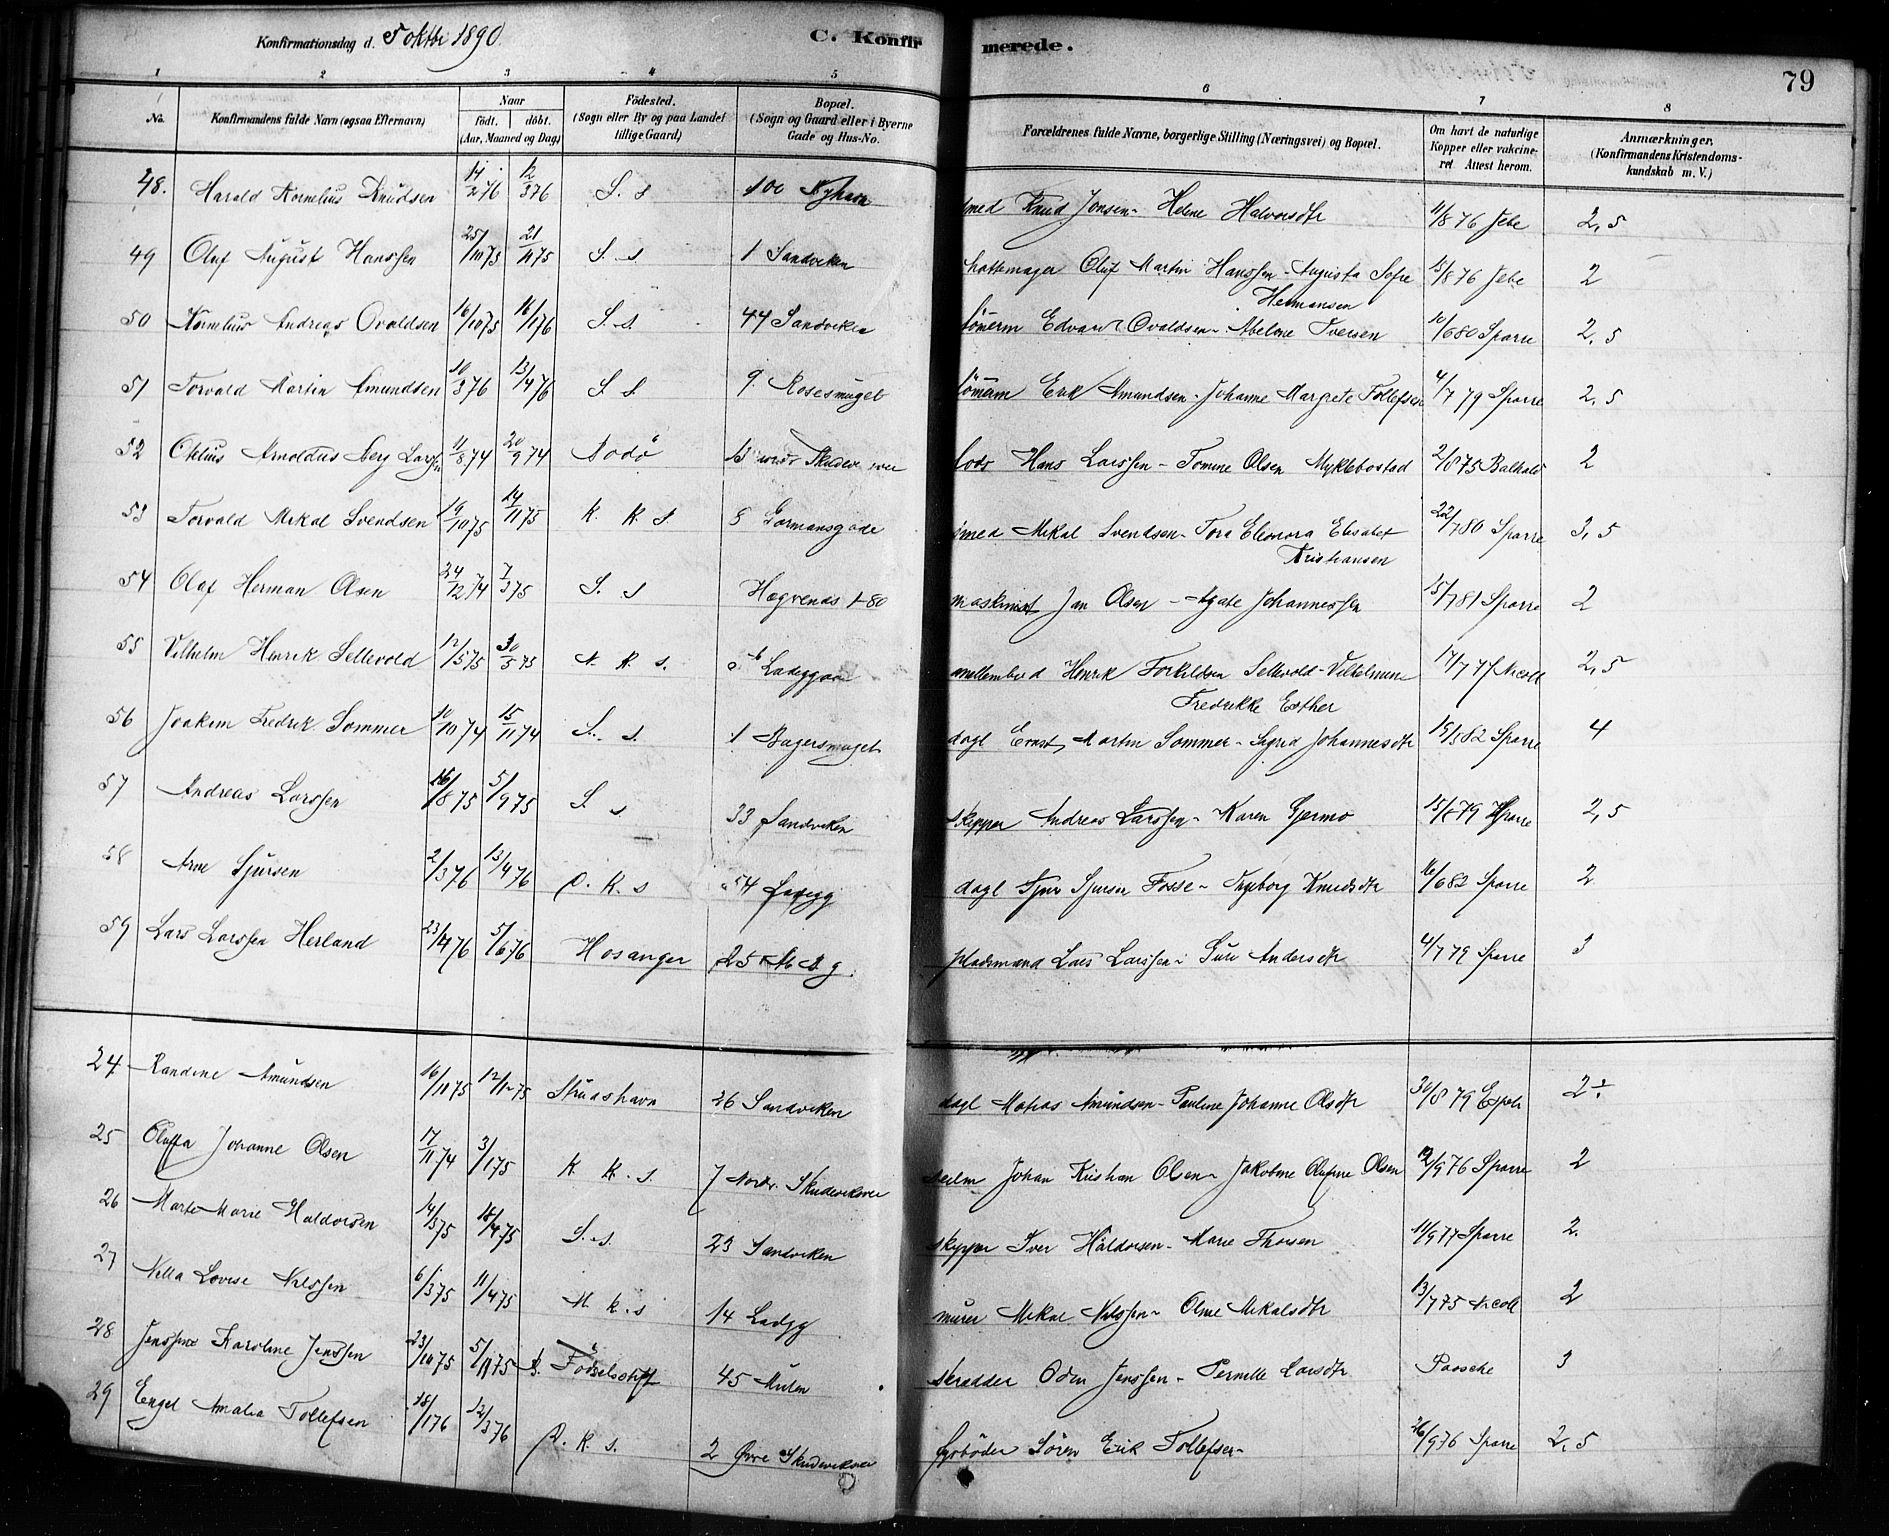 Konfirmationsdag d. 5 oktbr 1890.
C. Konfirmerede.
79
1 2 3 4 5 6 7 8
No.
Konfirmandens fulde Navn (ogsaa Efternavn)
Naar
födt. döbt.
(Aar, Maaned og Dag)
Födested.
(Sogn eller By og paa Landet
tillige Gaard)
Bopæl.
(Sogn og Gaard eller i Byerne
Gade og Hus-No.
Forældrenes fulde Navne, borgerlige Stilling (Næringsvei) og Bopæl.
Om havt de naturlige
Kopper eller vakcine-
ret Attest herom.
Anmærkninger,
(Konfirmandens Kristendoms-
kundskab m. V.)
48. Harald Kornelius Knudsen 14/2 76 12/3 76 S. s 100 Nyhavn smed Knud Jonsen - Helene Halvorsdtr 11/8 76 Jebe 2,5
49 Oluf August Hanssen 25/10 75 21/11 75 S. s 1 Sandviken Oluf Martin Hanssen - Augusta Sofie 15/8 76 Jebe 2
Hermansen
50 Kornelius Andreas Ovaldsen 16/10 75 16/1 76 S. s. 44 Sandviken tömerm Edvard Ovaldsen - Abelone Iversen 10/6 80 Sparre 2,5
51 Torvald Martin Amundsen 10/3 76 13/4 76 S S. 9 Rosesmuget tömerm Erik Amundsen - Johanne Margrete Tollefsen 4/7 79 Sparre 2,5
52 Arnoldus Berg Larsen 11/8 74 20/9 74 Bodö 13 Skudevikvei lods Hans Larssen - Tomine Olsen Myklebostad 2/8 75 2
53 Torvald Mikal Svendsen 19/10 75 14/11 75 K. K. S. 8 Gormansgade smed Mikal Svendsen - Tora Eleonora Elisabet 22/7 80 Sparre 3,5
Kristiansen
54 Olaf Herman Olsen 24/12 74 7/3 75 S. s Hægrenæs 1-80 maskinist Jan Olsen - Agate Johannessen 15/7 81 Sparre 2
55 Vilhelm Henrik Sellevold 12/5 75 30/5 75 N. K. s. Ladegaar Henrik Torkildsen Sellevold - Vilhelmine 17/7 77 Nicoll 2,5
Fredrikke Esther
56 Joakim Fredrik Sommer 10/10 74 15/11 74 S. s. 1 Bagersmuget dagl Ernst Martin Sommer - Sigrid Johannesdtr 15/5 82 Sparre 4
57 Andreas Larssen 16/8 75 5/9 75 S. s 33 Sandviken skipper Andreas Larssen - Karen Gjermo 15/8 79 Sparre 2,5
58 Arne Sjursen 2/3 76 13/4 76 D. K. s 54 Ladegg dagl Sjur Sjursen Fosse - Ingeborg Knudsdtr 16/6 82 Sparre 2
59 Lars Larssen Herland 23/4 76 5/6 76 Hosanger 25 pladsmand Lars Larssen - Guri Andersdtr 4/7 79 Sparre 3
24 Randine Amundsen 16/11 75 12/12 75 Strushavn 26 Sandviken dagl Matias Amundsen - Pauline Johanne Olsdtr 30/8 79 2÷
25 Oluffa Johanne Olsen 17/11 74 3/1 75 K. K. s. 7 Nordr. Skudeviksvei seilm Johan Kristian Olsen - Jakobine Olufine Olsen 12/9 76 Sparre 2
26 Marte Marie Haldorsen 14/3 75 18/4 75 S. s. 23 Sandviken skipper Iver Haldorsen - Marie Thorsen 11/9 77 Sparre 2.
27 Nella Lovise Nilssen 6/3 75 11/4 75 N. k. s 14 Ladgg murer Mikal Nilssen - Oline Mikalsdtr 13/7 75 Nicoll 2
28 Jenssine Karoline Jenssen 23/10 75 5/11 75 B. Födselsstift 45 Mulen skrædder Odin Jenssen - Pernille Larsdtr Paasche 3
29 Engel Amalia Tollefsen 18/1 76 12/3 76 D. K. s. 2 Övre Skudeviksvei fyrböder Sören Erik Tollefsen - 26/9 76 Sparre 2,5